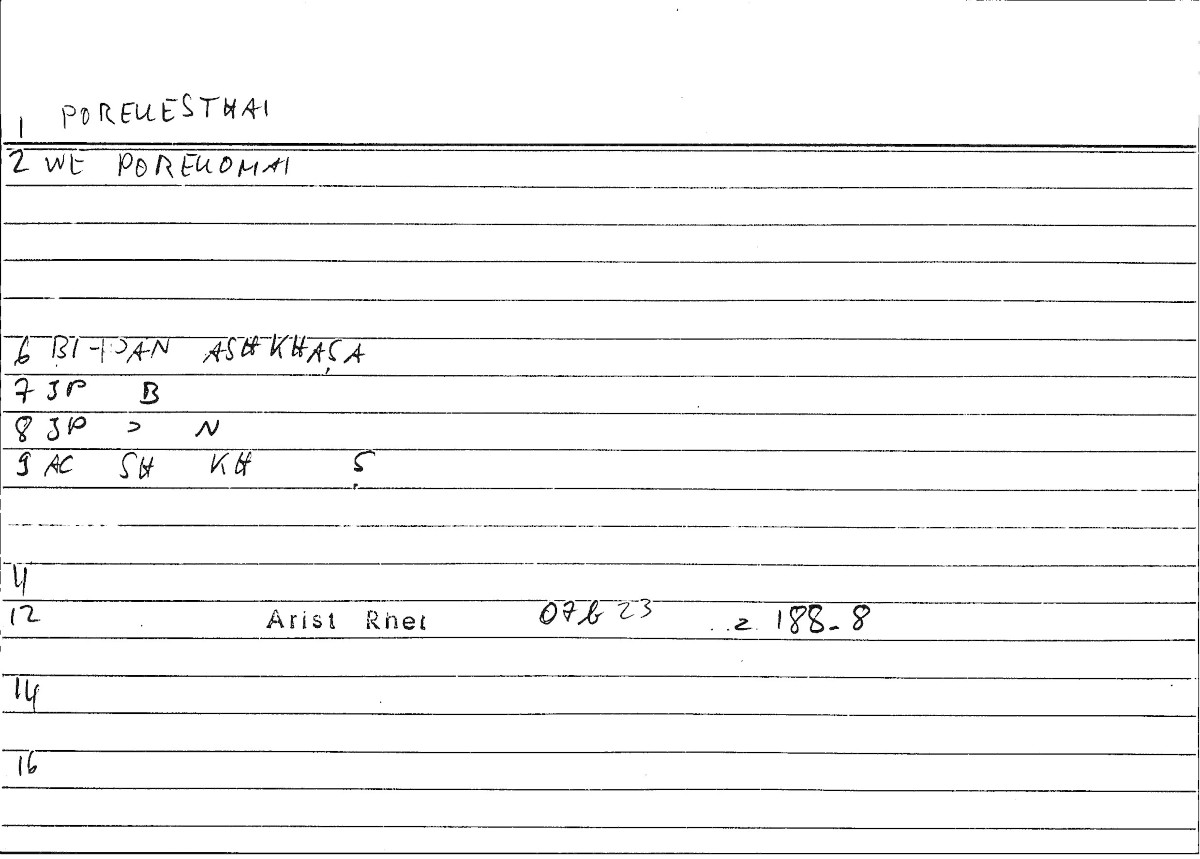 1 POREUESTHAI
2 WE POREUOMAI
6 BI-ɔAN ASHKHAṢA
7 JP B
8 JP ɔ N
9 AC SH KH Ṣ
4
12 Arist Rhet 07b23 z 188-8
14
16